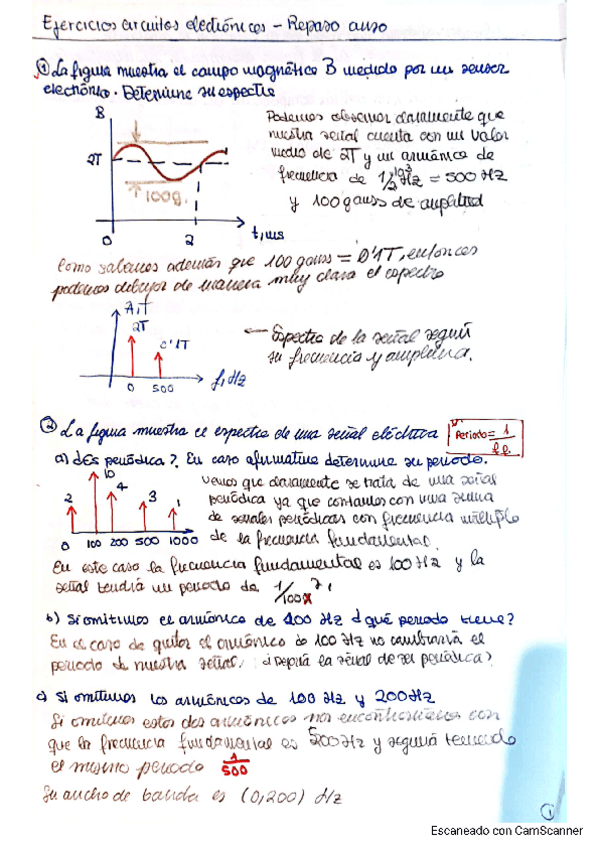 Ejercicios circuitos electrónicos - Repaso curso
① La figura muestra el campo magnético B medido por un sensor
electrónico. Determine su espectro
B
2T
100g.
0
2
t, ms
Podemos observar claramente que
nuestra señal cuenta con un valor
medio de 2T y un armónico de
frecuencia de 1/2 10³ Hz = 500 Hz
y 100 gauss de amplitud
Como sabemos además que 100 gauss = 0'1T, entonces
podemos dibujar de manera muy clara el espectro
A,T
2T
0'1T
0 500
f, Hz
← Espectro de la señal según
su frecuencia y amplitud.
② La figura muestra el espectro de una señal eléctrica
Periodo = 1/f.f.
a) ¿Es periódica?. En caso afirmativo determine su periodo.
2
10
4
3
1
0 100 200 500 1000
Vemos que claramente se trata de una señal
periódica ya que contamos con una suma
de señales periódicas con frecuencia múltiplo
de la frecuencia fundamental.
En este caso la frecuencia fundamental es 100 Hz y la
señal tendrá un periodo de 1/100
b) Si omitimos el armónico de 100 Hz ¿qué periodo tiene?
En el caso de quitar el armónico de 100 Hz no cambiaría el
periodo de nuestra señal. ¿Dejaría la señal de ser periódica?
c) Si omitimos los armónicos de 100 Hz y 200 Hz
Si omitimos estos dos armónicos nos encontraríamos con
que la frecuencia fundamental es 500 Hz y seguirá teniendo
el mismo periodo 1/500
Su ancho de banda es (0,200) Hz
1
Escaneado con CamScanner